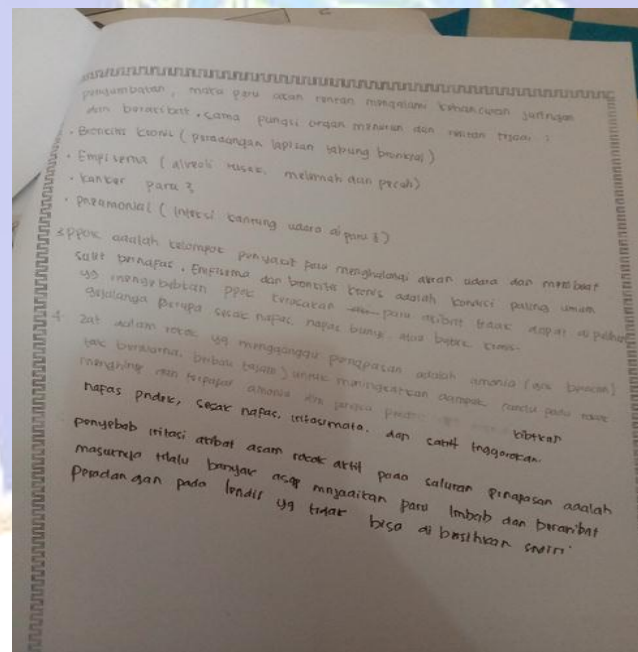 pengambatan, maka paru akan rentan mengalami kehancuran jaringan
dan berakibat. sama fungsi organ menurun dan rentan terjadi :
• Bronkitis kronis (peradangan lapisan tabung bronkial)
• Empisema (alveoli rusak, melemah dan pecah)
• kanker paru 2
• pneamonia (infeksi kantung udara di paru 2)
3 ppok adalah kelompok penyakit paru menghalangi aliran udara dan membuat
sulit bernafas. Emfisema dan bronkitis kronis adalah kondisi paling umum
yg mengebabkan ppok kerusakan paru akibat tidak dapat di pulihkan
gejalanya berupa sesak napas, napas bunyi, atau batuk kronis.
4 zat dalam rokok yg mengganggu pernapasan adalah amonia (gas beracun)
tak berwarna, berbau tajam) untuk meningkatkan dampak candu pada rokok
menghirup dan terpapar amonia dlm jangka
napas pndek, sesak nafas, iritasi mata, dan sakit tnggorokan.
penyebab iritasi akibat asam rokok aktif pada saluran prnapasan adalah
masuknya trlalu banyak asap mnjadikan paru lmbab dan berakibat
peradangan pada lendir yg tidak bisa di bersihkan sndiri.